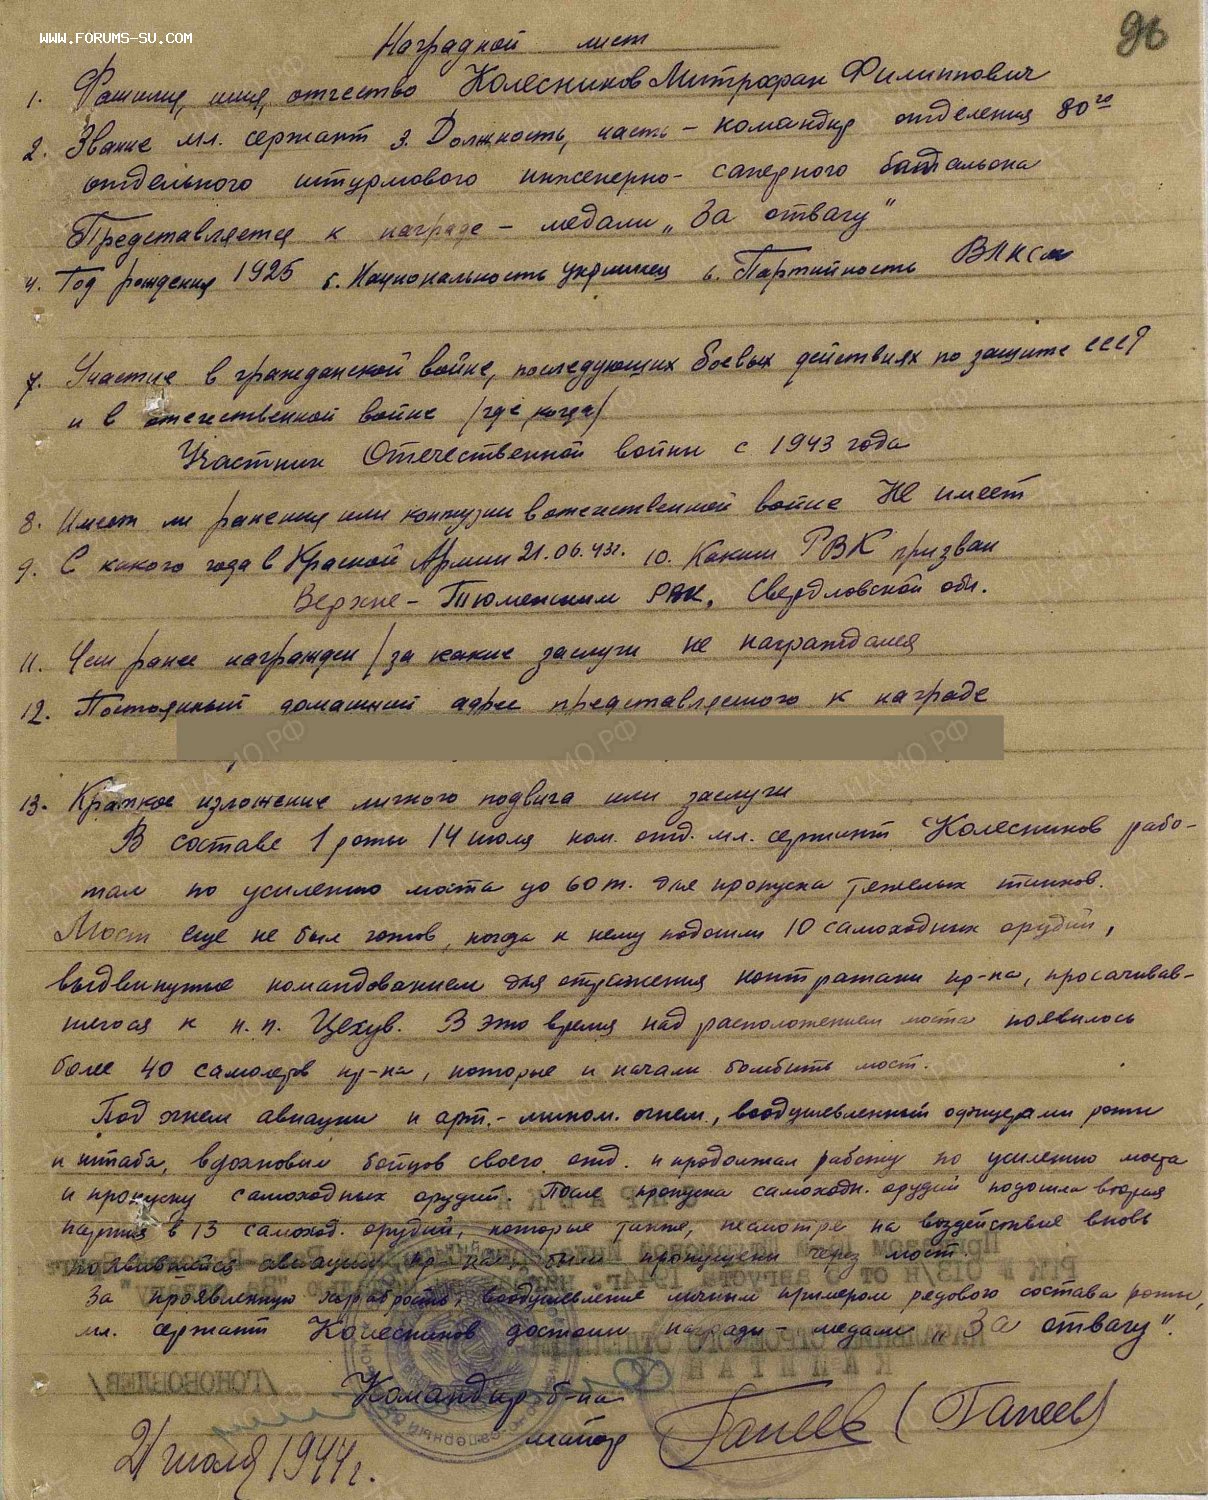 WWW.FORUMS-SU.COM
96
Наградной лист
1. Фамилия, имя, отчество Колесников Митрофан Филиппович
2. Звание мл. сержант 3. Должность, часть - командир отделения 80го
отдельного штурмового инженерно- саперного батальона
Представляется к награде - медали „За отвагу"
4. Год рождения 1925 5. Национальность украинец 6. Партийность ВЛКСМ
7. Участие в гражданской войне, последующих боевых действиях по защите СССР
и в отечественной войне /где, когда/
Участник Отечественной войны с 1943 года
8. Имеет ли ранения или контузии в отечественной войне Не имеет
9. С какого года в Красной Армии 21.06.43г. 10. Каким РВК призван
Верхне-Тюменским РВК, Свердловской обл.
11. Чем ранее награжден /за какие заслуги не награждался
12. Постоянный домашний адрес представляемого к награде
13. Краткое изложение личного подвига или заслуги
В составе 1 роты 14 июля ком. отд. мл. сержант Колесников рабо-
тал по усилению моста до 60 т. для пропуска тяжелых танков.
Мост еще не был готов, когда к нему подошли 10 самоходных орудий,
выдвинутые командованием для отражения контратаки пр-ка, просачивав-
шегося к н.п. Цехув. В это время над расположением моста появилось
более 40 самолетов пр-ка, которые и начали бомбить мост.
Под огнем авиации и арт.-мином. огнем, воодушевленный офицерами роты
и штаба, вдохновил бойцов своего отд. и продолжал работу по усилению моста
и пропуску самоходных орудий. После пропуска самоходн. орудий подошла вторая
партия в 13 самоход. орудий, которые также, несмотря на воздействие вновь
появившейся авиации пр-ка, были пропущены через мост.
За проявленную храбрость, воодушевление личным примером рядового состава роты,
мл. сержант Колесников достоин награды - медали „За отвагу".
Командир б-на
майор Гапеев (Гапеев)
21 июля 1944 г.